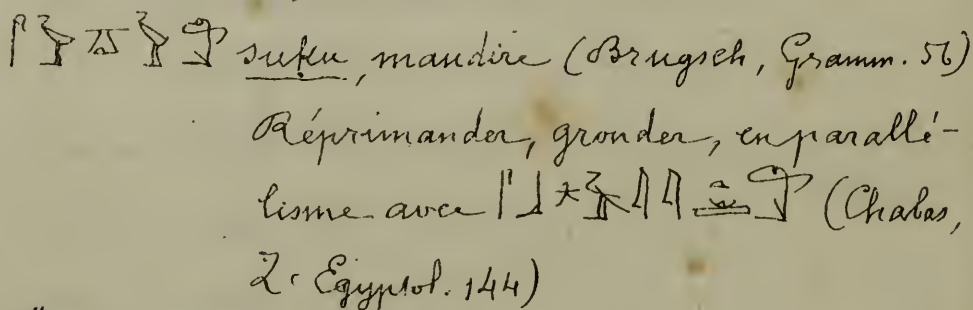 suku, maudire (Brugsch, Gramm. 56)
Réprimander, gronder, en parallé-
lisme avec (Chabas,
Z. Egyptol. 144)